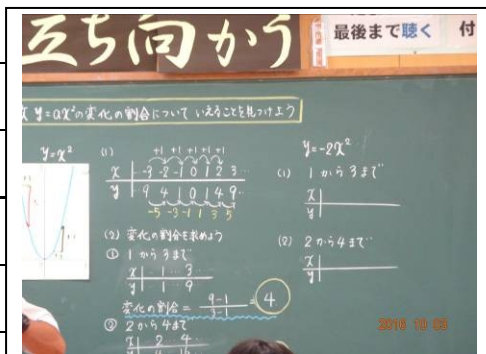 立ち向かう
最後まで聴く 付
y=ax²の変化の割合について いえることを見つけよう
y=x²
(1)
+1 +1 +1 +1 +1
x -3 -2 -1 0 1 2 3 …
y 9 4 1 0 1 4 9 …
-5 -3 -1 1 3 5
(2) 変化の割合を求めよう
① 1から3まで
x … 1 … 3 …
y … 1 … 9
変化の割合 = 9-1/3-1 = 4
② 2から4まで
x 2 4 …
y=-2x²
(1) 1から3まで
x
y
(2) 2から4まで
x
y
2016 10 03